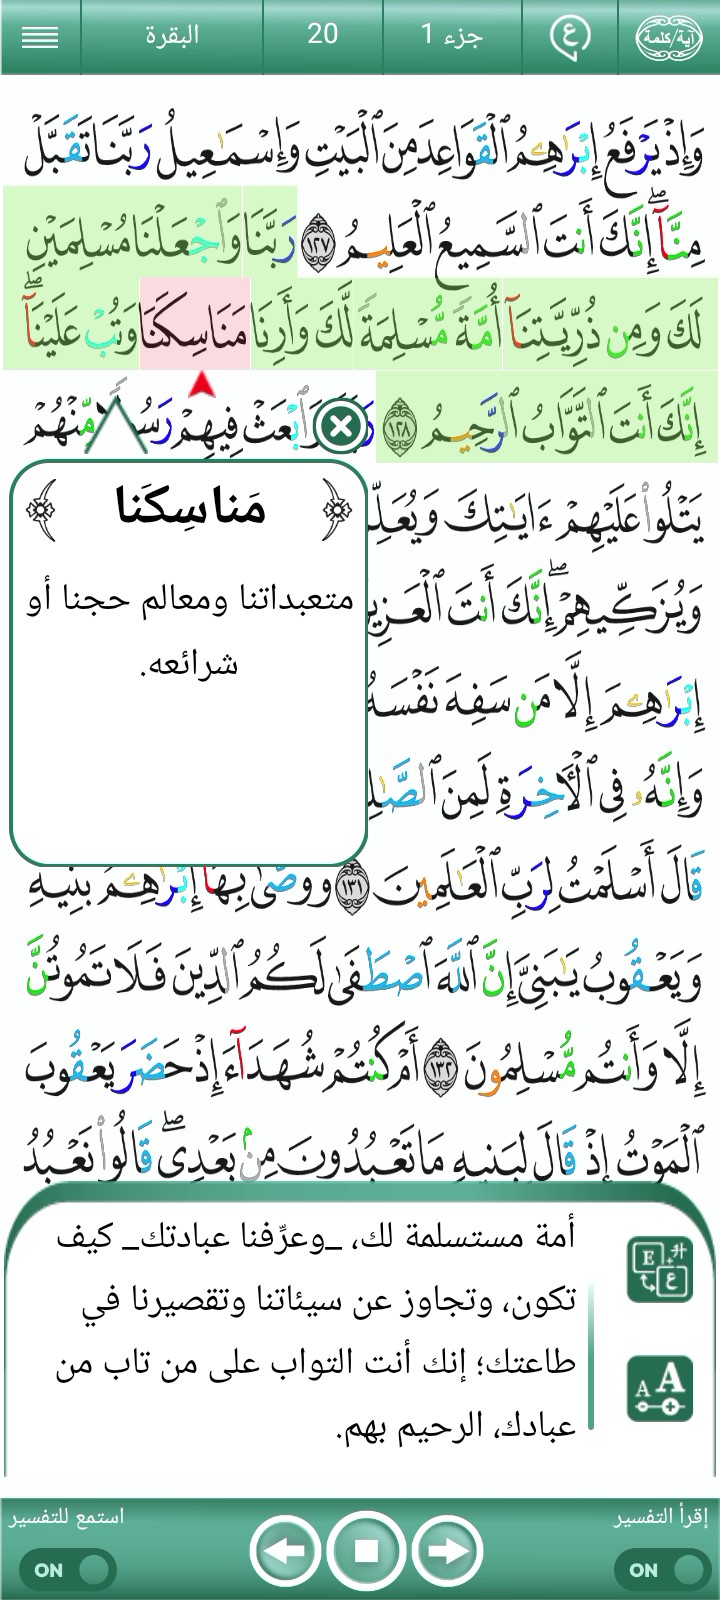 آية/كلمة
ع
جزء 1
20
البقرة
وَإِذْ يَرْفَعُ إِبْرَٰهِـۧمُ ٱلْقَوَاعِدَ مِنَ ٱلْبَيْتِ وَإِسْمَـٰعِيلُ رَبَّنَا تَقَبَّلْ
مِنَّآ ۖ إِنَّكَ أَنتَ ٱلسَّمِيعُ ٱلْعَلِيمُ ١٢٧ رَبَّنَا وَٱجْعَلْنَا مُسْلِمَيْنِ
لَكَ وَمِن ذُرِّيَّتِنَآ أُمَّةً مُّسْلِمَةً لَّكَ وَأَرِنَا مَنَاسِكَنَا وَتُبْ عَلَيْنَآ ۖ
إِنَّكَ أَنتَ ٱلتَّوَّابُ ٱلرَّحِيمُ ١٢٨ وَٱبْعَثْ فِيهِمْ رَسُولًا مِّنْهُمْ
يَتْلُوا۟ عَلَيْهِمْ ءَايَـٰتِكَ
وَيُزَكِّيهِمْ ۖ إِنَّكَ أَنتَ
إِبْرَٰهِـۧمَ إِلَّا مَن سَفِهَ نَفْسَهُ
وَإِنَّهُۥ فِى ٱلْـَٔاخِرَةِ لَمِنَ
مَناسِكَنا
متعبداتنا ومعالم حجنا أو
شرائعه.
قَالَ أَسْلَمْتُ لِرَبِّ ٱلْعَـٰلَمِينَ ١٣١ وَوَصَّىٰ بِهَآ إِبْرَٰهِـۧمُ بَنِيهِ
وَيَعْقُوبُ يَـٰبَنِىَّ إِنَّ ٱللَّهَ ٱصْطَفَىٰ لَكُمُ ٱلدِّينَ فَلَا تَمُوتُنَّ
إِلَّا وَأَنتُم مُّسْلِمُونَ ١٣٢ أَمْ كُنتُمْ شُهَدَآءَ إِذْ حَضَرَ يَعْقُوبَ
ٱلْمَوْتُ إِذْ قَالَ لِبَنِيهِ مَا تَعْبُدُونَ مِنۢ بَعْدِى ۖ قَالُوا۟ نَعْبُدُ
أمة مستسلمة لك، _وعرِّفنا عبادتك_ كيف
تكون، وتجاوز عن سيئاتنا وتقصيرنا في
طاعتك؛ إنك أنت التواب على من تاب من
عبادك، الرحيم بهم.
إقرأ التفسير
ON
استمع للتفسير
ON